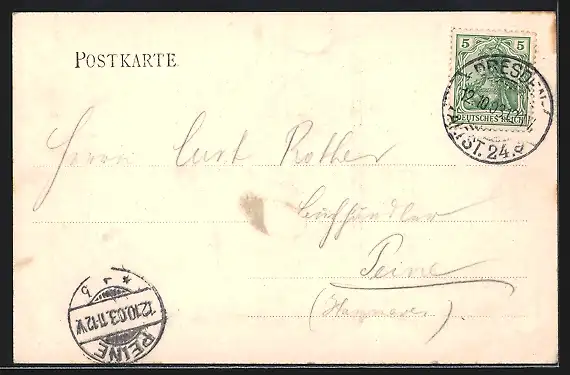 POSTKARTE
5 5
DEUTSCHES REICH
DRESDEN-
12.10.03
ALTST. 24.
Herrn Curt Rother
Buchhändler
Peine
(Hannover)
12.10.03.11-12V.
PEINE